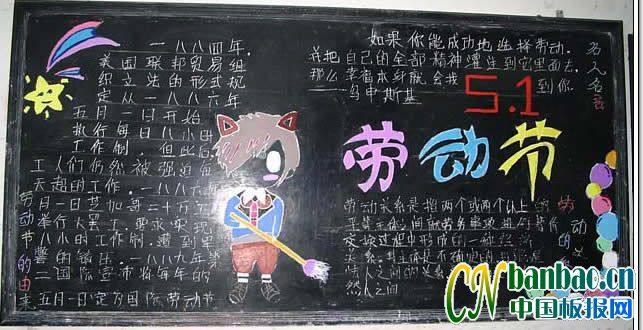 一八八四年,
美国联邦贸易组
织立法的形式规
定从一八八六年
五月一日开始
执行每日八小时
工作制 但此后
工人们仍然被强迫每
天超时工作.一八八六年
月一日芝加哥二十万工
举行大罢工,要求实现
八小时工作制,遭到
警的镇压.一八八九年第
二国际宣布将每年的
五月一日定为国际劳动节
劳动节的由来
如果你能成功地选择劳动.
并把自己的全部精神灌注到它里面去.
那么幸福本身就会找到你
——乌申斯基
名人名言
5.1
劳动节
劳动关系是指两个或两个以上
交换过程中形成的一种经济
关系.
法人之间的关系
然人之间
CN banbao.cn
中国板报网